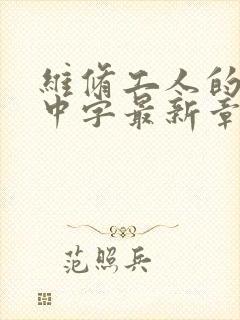 維脩工人的
中字最新章
范照兵